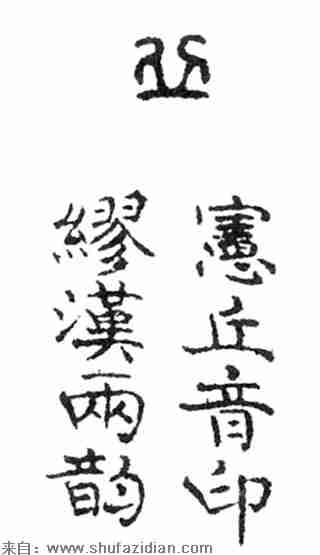 丘
憲丘音印
繆漢兩韵
来自：www.shufazidian.com